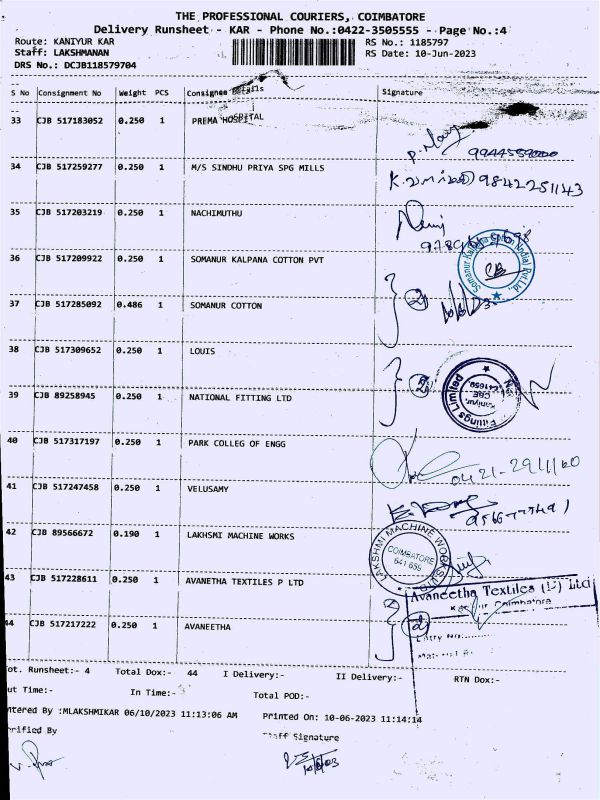 THE PROFESSIONAL COURIERS, COIMBATORE
Delivery Runsheet - KAR - Phone No.:0422-3505555 - Page No.:4
Route: KANIYUR KAR RS No.: 1185797
Staff: LAKSHMANAN RS Date: 10-Jun-2023
DRS No.: DCJB118579704
S No Consignment No Weight PCS Consignee Details Signature
33 CJB 517183052 0.250 1 PREMA HOSPITAL
34 CJB 517259277 0.250 1 M/S SINDHU PRIYA SPG MILLS 9842251143
35 CJB 517203219 0.250 1 NACHIMUTHU
36 CJB 517209922 0.250 1 SOMANUR KALPANA COTTON PVT
Somanur Kalpana Cotton (India) Pvt Ltd.,
37 CJB 517285092 0.486 1 SOMANUR COTTON
38 CJB 517309652 0.250 1 LOUIS
39 CJB 89258945 0.250 1 NATIONAL FITTING LTD
Fittings Limited
Kaniyur,
CBE
641659
40 CJB 517317197 0.250 1 PARK COLLEG OF ENGG
41 CJB 517247458 0.250 1 VELUSAMY
42 CJB 89566672 0.190 1 LAKHSMI MACHINE WORKS
LAKSHMI MACHINE WORKS
COIMBATORE
641 659
43 CJB 517228611 0.250 1 AVANEETHA TEXTILES P LTD
Avaneetha Textiles (P) Ltd
Coimbatore
44 CJB 517217222 0.250 1 AVANEETHA
Entry No:
Tot. Runsheet:- 4 Total Dox:- 44 I Delivery:- II Delivery:- RTN Dox:-
Out Time:- In Time:- Total POD:-
Entered By :MLAKSHMIKAR 06/10/2023 11:13:06 AM Printed On: 10-06-2023 11:14:14
Verified By Staff Signature